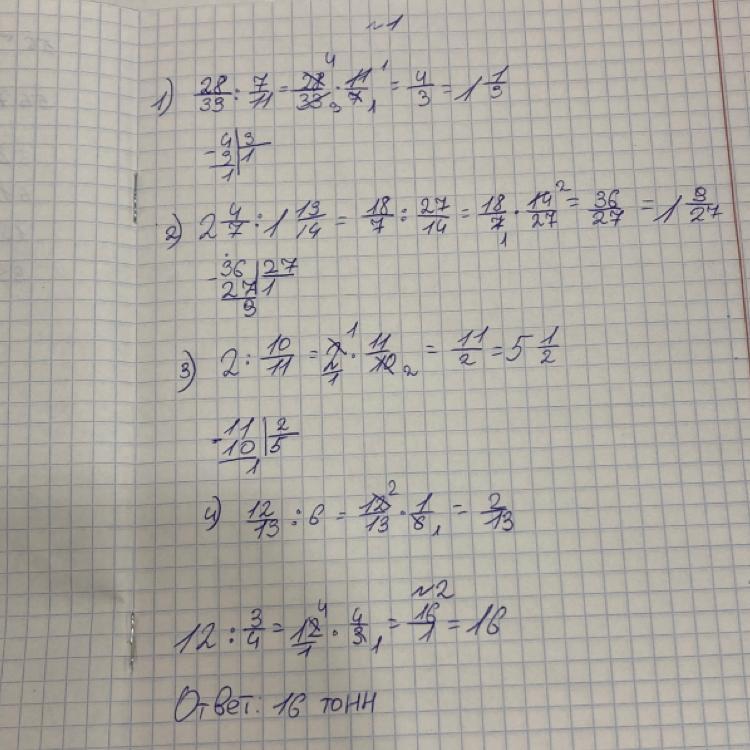 №1
1) 28/33 : 7/11 = 28/33 3 4 · 11/7 1 1 = 4/3 = 1 1/3
- 4 | 3
3 | 1
1
2) 2 4/7 : 1 13/14 = 18/7 : 27/14 = 18/7 1 · 14/27 2 = 36/27 = 1 9/27
- 36 | 27
27 | 1
9
3) 2 : 10/11 = 2/1 1 · 11/10 2 = 11/2 = 5 1/2
- 11 | 2
10 | 5
1
4) 12/13 : 6 = 12/13 2 · 1/6 1 = 2/13
№2
12 : 3/4 = 12/1 4 · 4/3 1 = 16/1 = 16
Ответ: 16 тонн